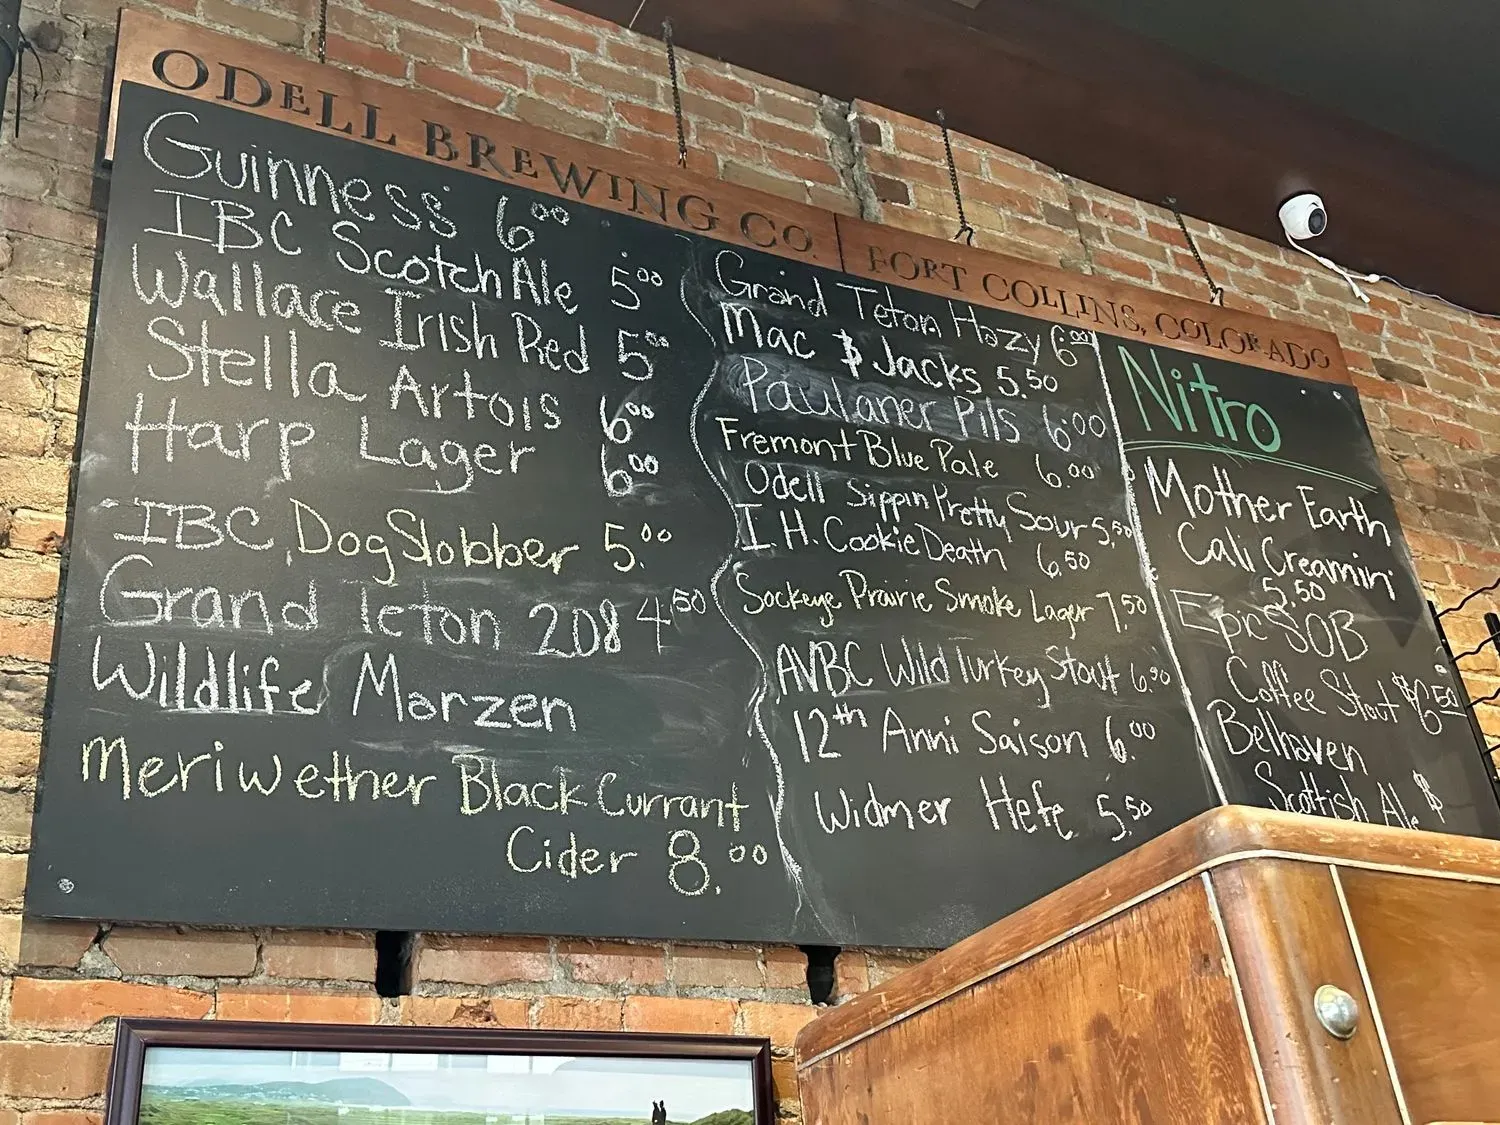 ODELL BREWING CO. | FORT COLLINS, COLORADO
Guinness 6.00
IBC Scotch Ale 5.00
Wallace Irish Red 5.00
Stella Artois 6.00
Harp Lager 6.00
IBC Dog Slobber 5.00
Grand Teton 208 4.50
Wildlife Marzen
Meriwether Black Currant
Cider 8.00
Grand Teton Hazy 6.00
Mac $ Jacks 5.50
Paulaner Pils 6.00
Fremont Blue Pale 6.00
Odell Sippin Pretty Sour 5.50
I.H. Cookie Death 6.50
Sockeye Prairie Smoke Lager 7.50
AVBC Wild Turkey Stout 6.90
12th Anni Saison 6.00
Widmer Hefe 5.50
Nitro
Mother Earth
Cali Creamin'
5.50
Epic SOB
Coffee Stout $6.50
Belhaven
Scottish Ale $